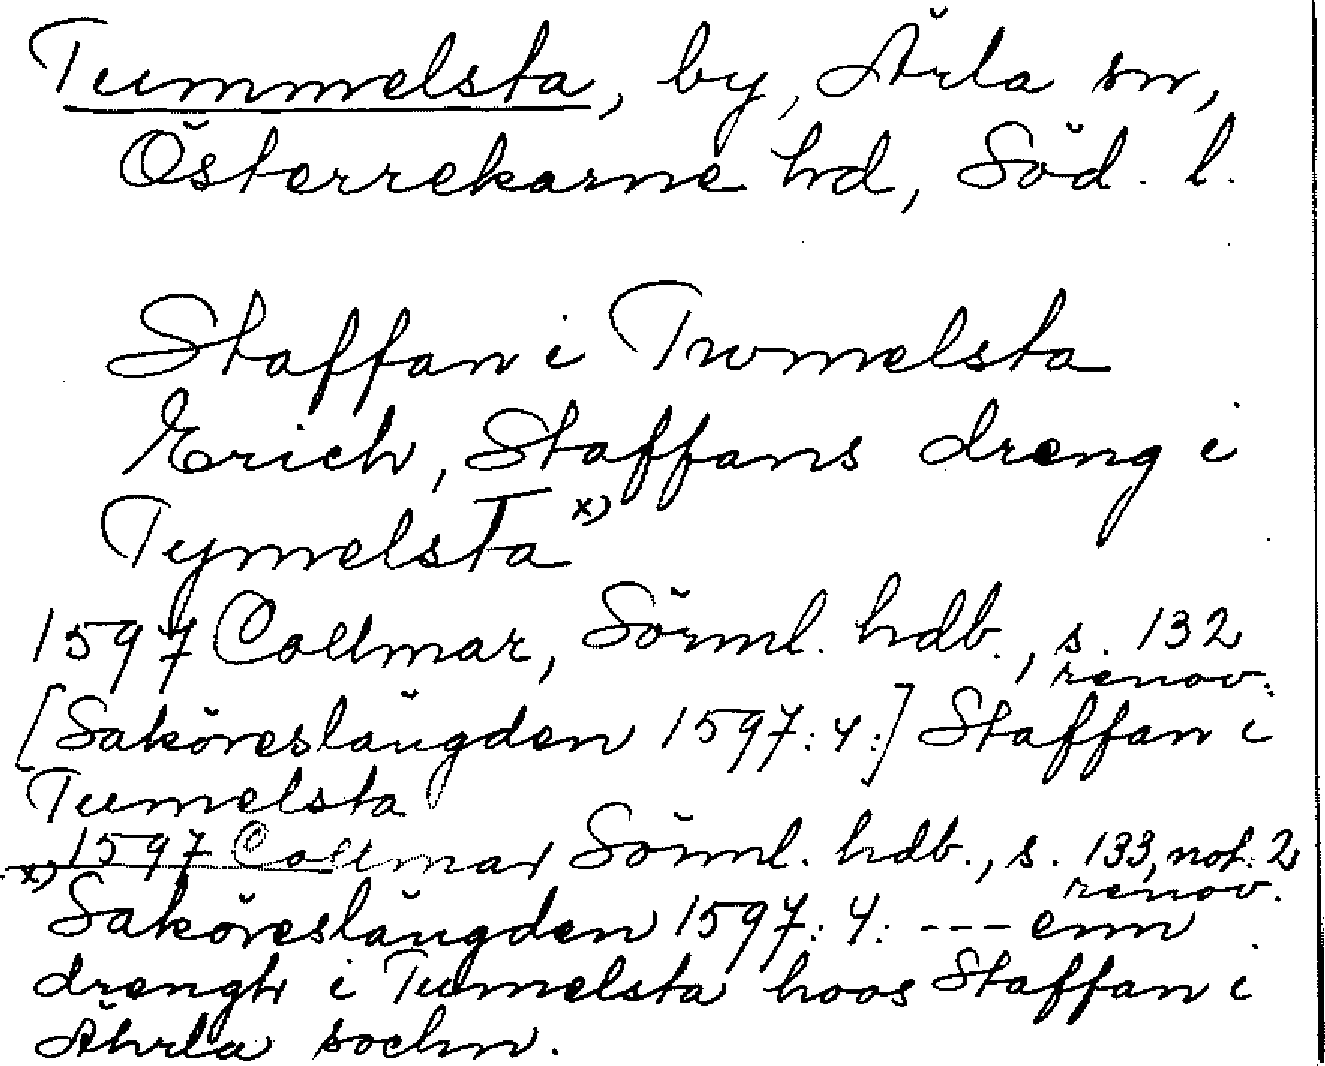 Tummelsta, by, Ärla sn,
Österrekarne hd, Söd. l.
Staffan i Twmelsta
Erich, Staffans dreng i
Tymelsta x)
1597 Collmar, Sörml. hdb., s. 132
renov.:
[Saköreslängden 1597:4:] Staffan i
Tumelsta
1597 Collmar Sörml. hdb., s. 133, not. 2
x) renov.
Saköreslängden 1597:4: --- enn
drengh i Tumelsta hoos Staffan i
Ährla sochn.